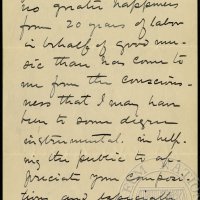 no greater happiness
from 20 years of labor
in behalf of good mu-
sic than has come to
me from the conscious-
ness that I may have
been to some degree
instrumental in help-
ing the public to ap-
preciate your composi-
tions and especially